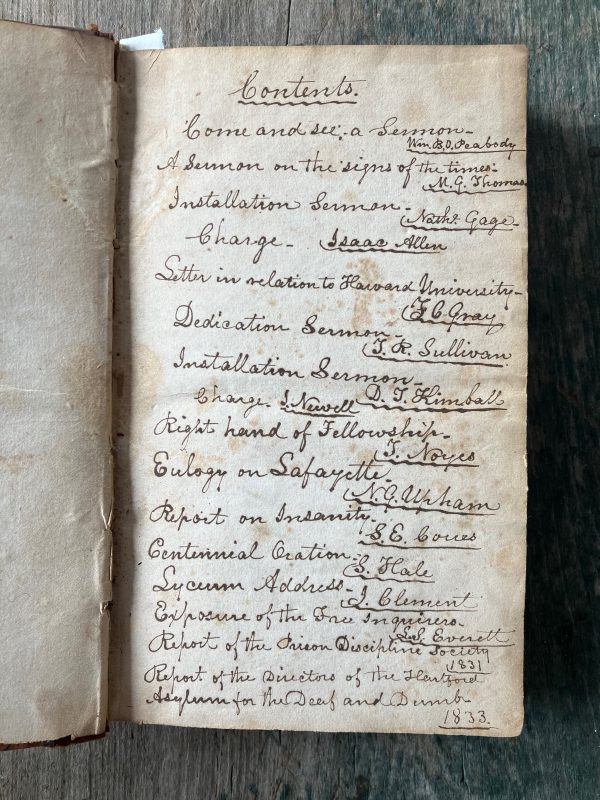 Contents.
Come and see - a Sermon -
Wm B.O. Peabody
A Sermon on the signs of the times -
M. G. Thomas
Installation Sermon -
Nathl. Gage -
Charge - Isaac Allen
Letter in relation to Harvard University -
F. C. Gray
Dedication Sermon -
T. R. Sullivan
Installation Sermon -
D. T. Kimball
Charge - J. Newell
Right hand of Fellowship -
T. Noyes
Eulogy on Lafayette -
N. G. Upham
Report on Insanity -
S. E. Coues
Centennial Oration -
S. Hale
Lyceum Address -
J. Clement
Exposure of the Free Inquirers -
Everett
Report of the Prison Discipline Society
1831
Report of the Directors of the Hartford
Asylum for the Deaf and Dumb -
1833.